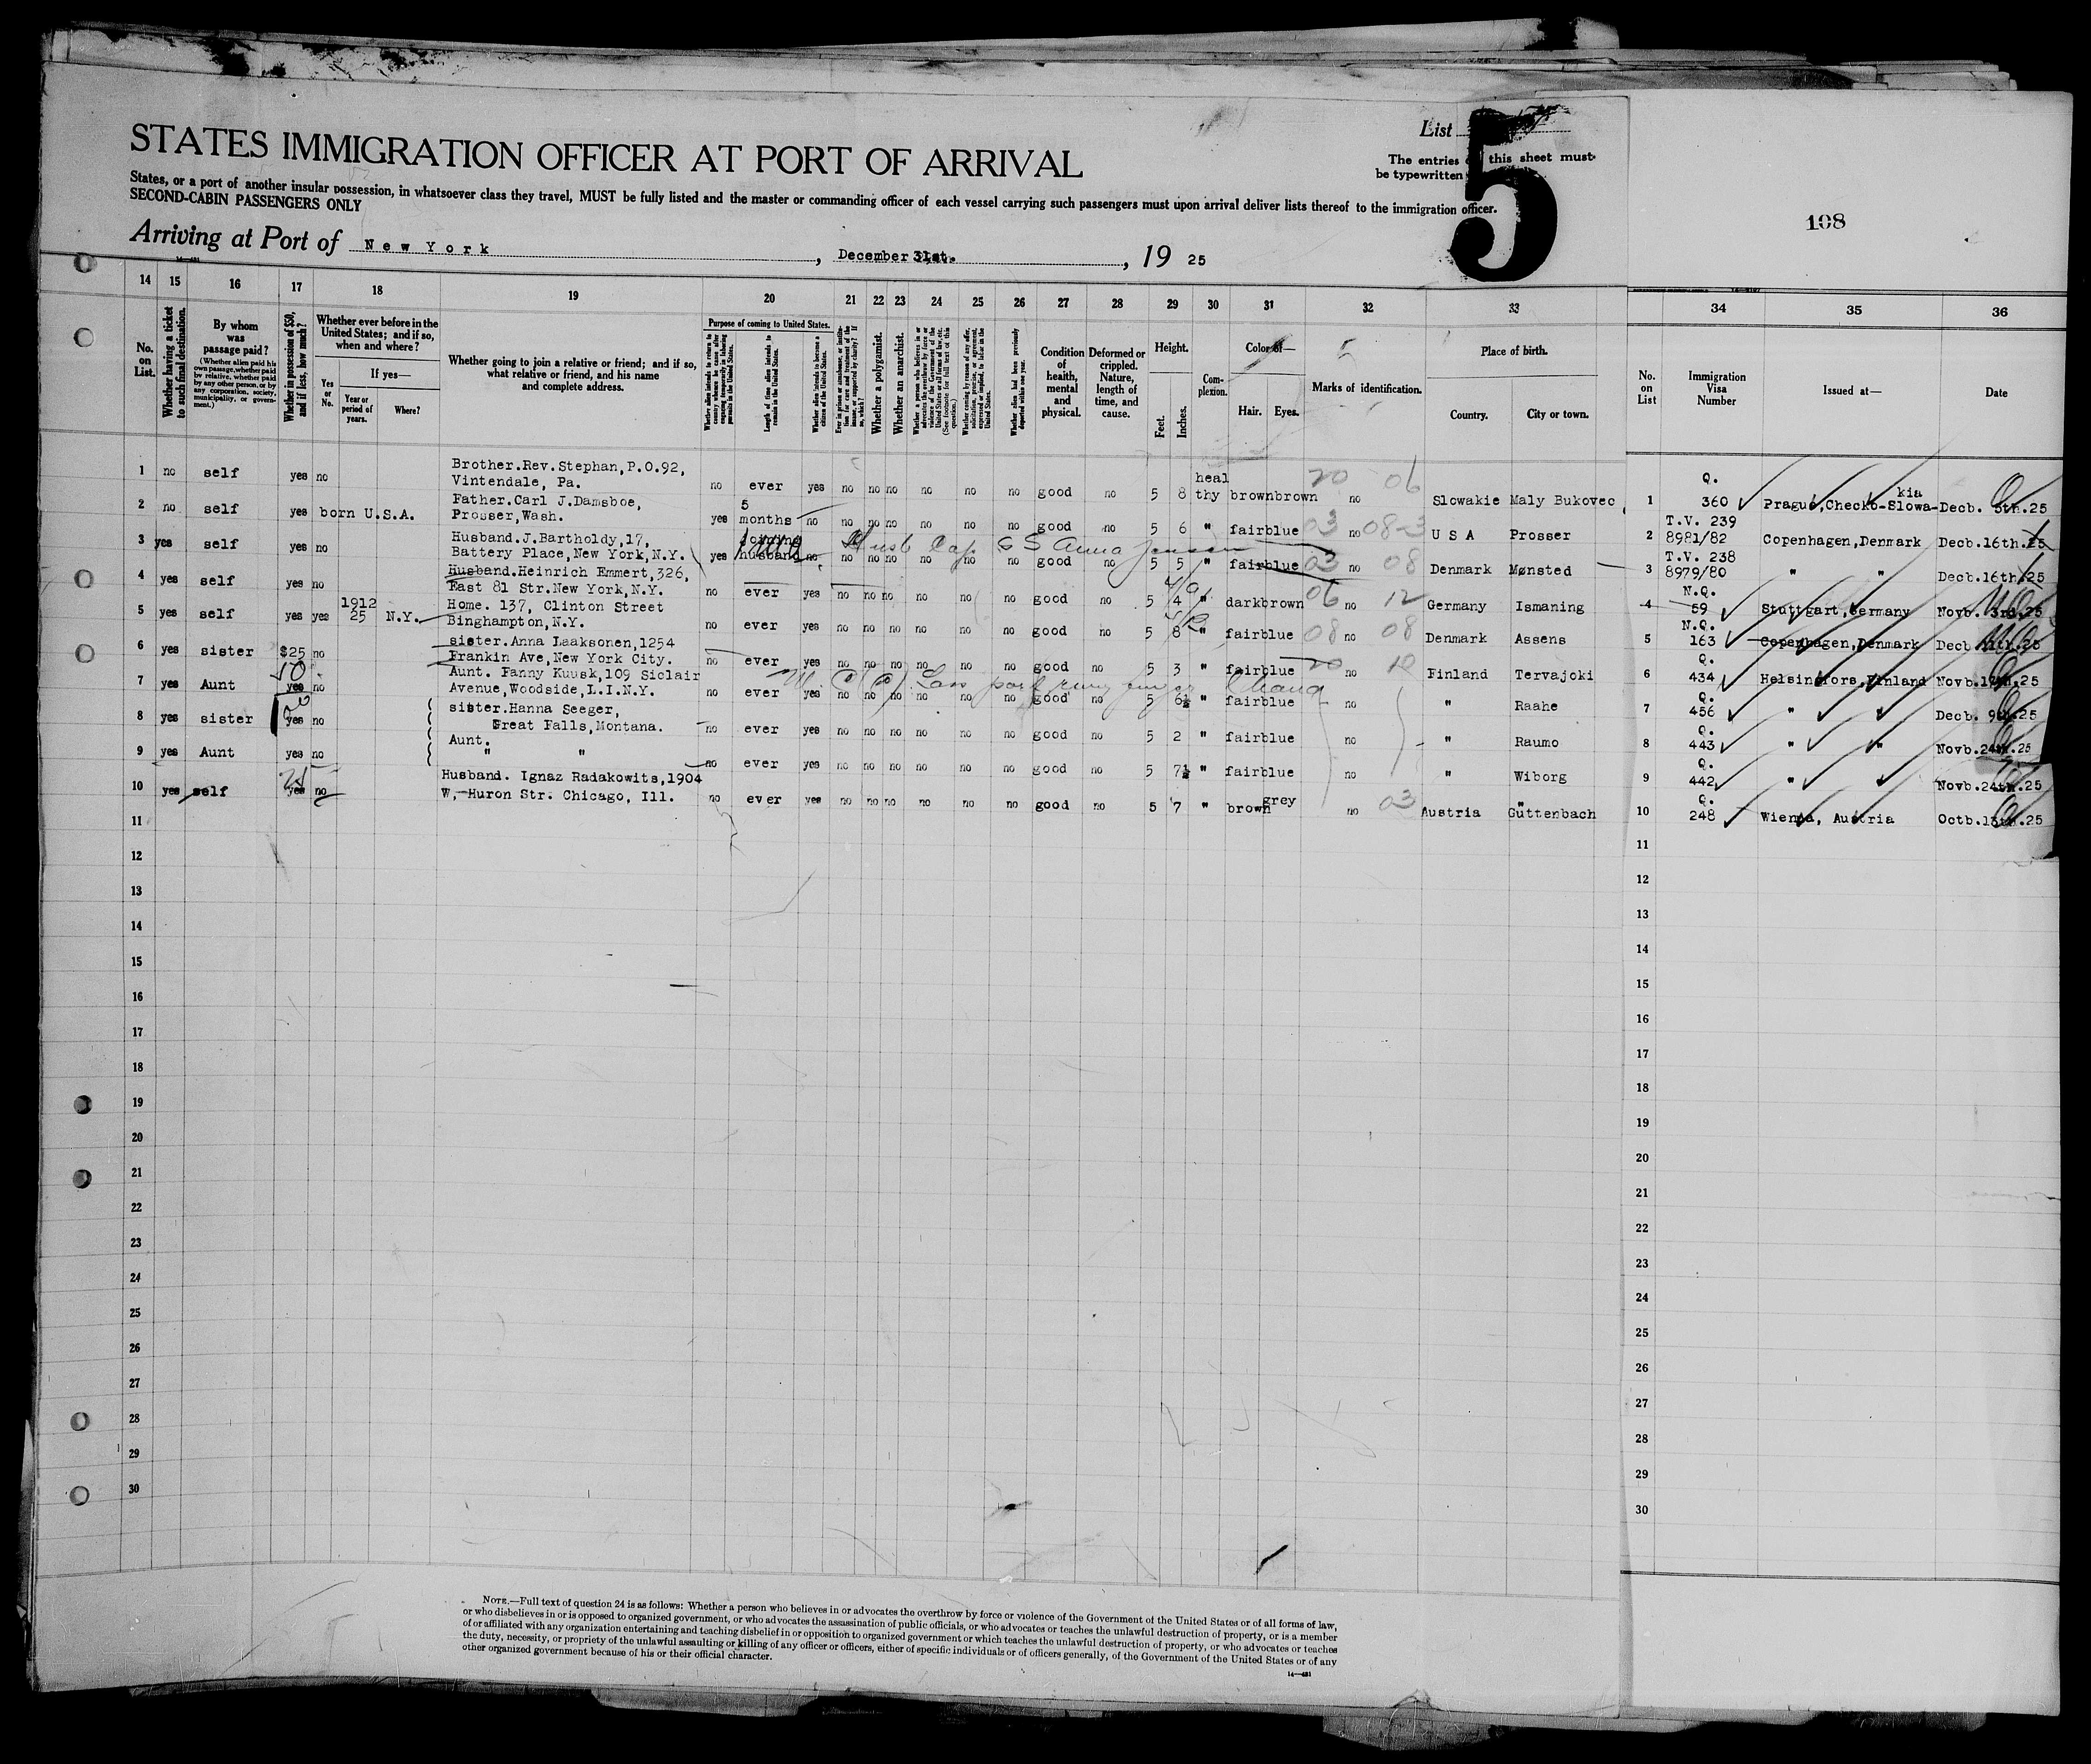 List
5
STATES IMMIGRATION OFFICER AT PORT OF ARRIVAL
The entries this sheet must
be typewritten
States, or a port of another insular possession, in whatsoever class they travel, MUST be fully listed and the master or commanding officer of each vessel carrying such passengers must upon arrival deliver lists thereof to the immigration officer.
SECOND-CABIN PASSENGERS ONLY
108
Arriving at Port of New York, December 31st., 19 25
14 15 16 17 18 19 20 21 22 23 24 25 26 27 28 29 30 31 32 33 34 35 36
No. on List.
Whether having a ticket to such final destination.
By whom was passage paid?
(Whether alien paid his own passage, whether paid by relative, whether paid by any other person, or by any corporation, society, municipality, or government.)
Whether in possession of $50, and if less, how much?
Whether ever before in the United States; and if so, when and where?
Yes or No.
If yes—
Year or period of years.
Where?
Whether going to join a relative or friend; and if so, what relative or friend, and his name and complete address.
Purpose of coming to United States.
Length of time alien intends to remain in the United States.
Whether alien intends to become a citizen of the United States.
Whether a polygamist.
Whether an anarchist.
Condition of health, mental and physical.
Deformed or crippled. Nature, length of time, and cause.
Height.
Feet. Inches.
Complexion.
Color of—
Hair. Eyes.
Marks of identification.
Place of birth.
Country. City or town.
No. on List
Immigration Visa Number
Issued at—
Date
1 no self yes no Brother.Rev.Stephan,P.O.92, Vintendale, Pa. no ever yes no no no no no no good no 5 8 healthy brown brown no Slowakie Maly Bukovec 1 Q. 360 Prague,Checko-Slowakia Decb. 5th.25
2 no self yes born U.S.A. Father.Carl J.Damsboe, Prosser,Wash. yes 5 months no no no no no no no good no 5 6 " fair blue no U S A Prosser 2 T.V. 239 8981/82 Copenhagen,Denmark Decb.16th.25
3 yes self yes no Husband.J.Bartholdy,17, Battery Place,New York,N.Y. yes joining husband no no no no no no no good no 5 5 " fair blue no Denmark Mønsted 3 T.V. 238 8979/80 " " Decb.16th.25
Husb Cap S S Anna Jensen
4 yes self yes no Husband.Heinrich Emmert,326, East 81 Str.New York,N.Y. no ever yes no no no no no no good no 5 4 " dark brown no Germany Ismaning 4 N.Q. 59 Stuttgart,Germany Novb. 3rd.25
5 yes self yes yes 1912 25 N.Y. Home. 137, Clinton Street Binghampton,N.Y. no ever yes no no no no no no good no 5 8 " fair blue no Denmark Assens 5 N.Q. 163 Copenhagen,Denmark Decb 11th.25
6 yes sister $25 no sister.Anna Laaksonen,1254 Frankin Ave,New York City. no ever yes no no no no no no good no 5 3 " fair blue no Finland Tervajoki 6 Q. 434 Helsingfors,Finland Novb.17th.25
7 yes Aunt yes no Aunt. Fanny Kuusk,109 Siclair Avenue,Woodside,L.I.N.Y. no ever yes no no no no no no good no 5 6½ " fair blue no " Raahe 7 Q. 456 " " Decb. 9th.25
8 yes sister yes no sister.Hanna Seeger, Great Falls,Montana. no ever yes no no no no no no good no 5 2 " fair blue no " Raumo 8 Q. 443 " " Novb.24th.25
9 yes Aunt yes no Aunt. " " no ever yes no no no no no no good no 5 7½ " fair blue no " Wiborg 9 Q. 442 " " Novb.24th.25
10 yes self yes no Husband. Ignaz Radakowits,1904 W, Huron Str. Chicago, Ill. no ever yes no no no no no no good no 5 7 " brown grey no Austria Güttenbach 10 Q. 248 Wienna, Austria Octb.13th.25
11 11
12 12
13 13
14 14
15 15
16 16
17 17
18 18
19 19
20 20
21 21
22 22
23 23
24 24
25 25
26 26
27 27
28 28
29 29
30 30
NOTE.—Full text of question 24 is as follows: Whether a person who believes in or advocates the overthrow by force or violence of the Government of the United States or of all forms of law,
or who disbelieves in or is opposed to organized government, or who advocates the assassination of public officials, or who advocates or teaches the unlawful destruction of property, or is a member
of or affiliated with any organization entertaining and teaching disbelief in or opposition to organized government or which teaches the unlawful destruction of property, or who advocates or teaches
the duty, necessity, or propriety of the unlawful assaulting or killing of any officer or officers, either of specific individuals or of officers generally, of the Government of the United States or of any
other organized government because of his or their official character.